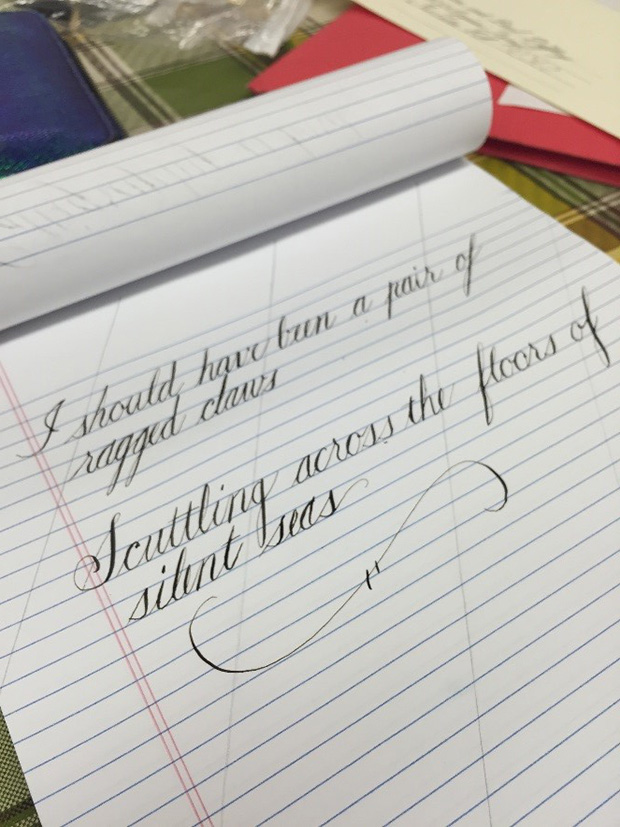 I should have been a pair of
ragged claws
Scuttling across the floors of
silent seas